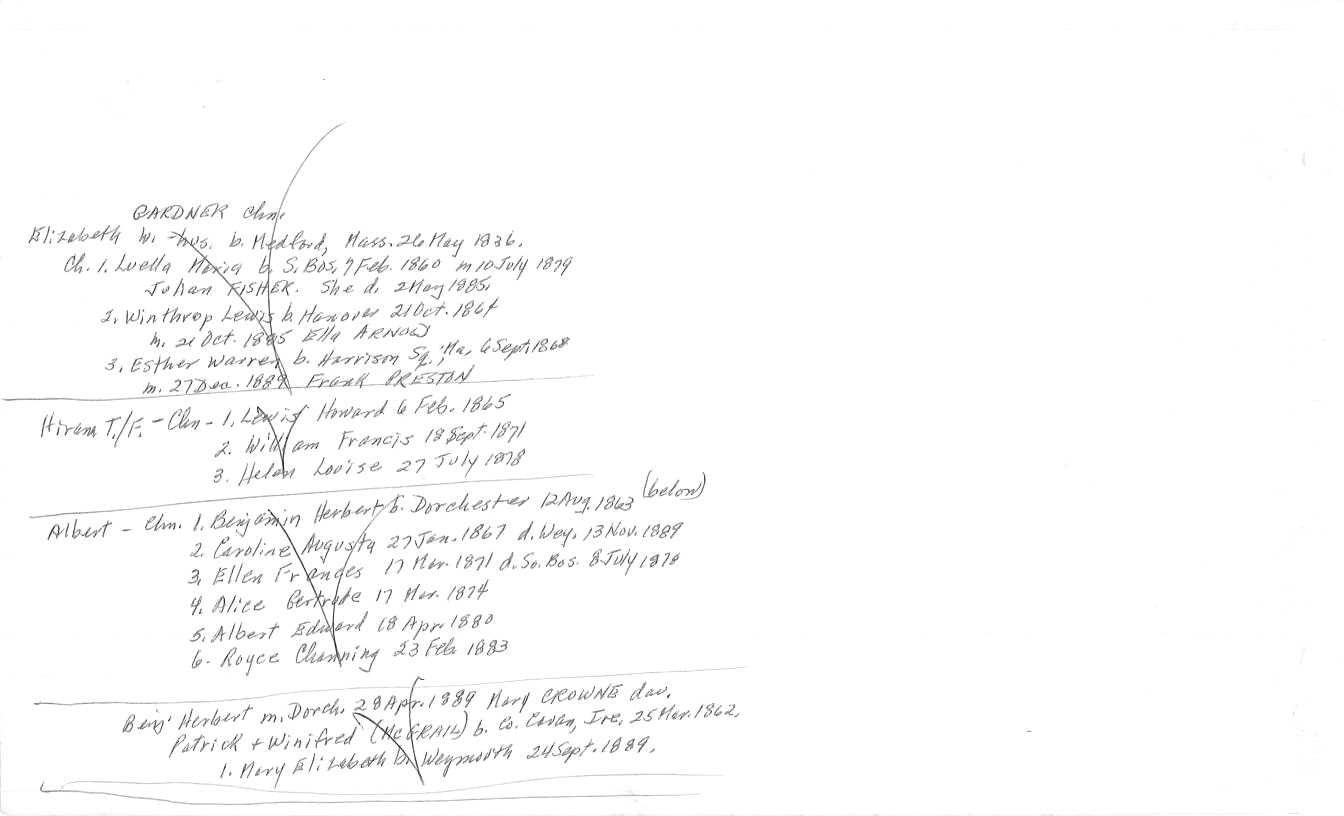 GARDNER Chn.
Elizabeth W. hus. b. Medford, Mass. 26 May 1836.
Ch. 1. Luella Maria b. S. Bos. 7 Feb. 1860 m 10 July 1879
Julian FISHER. She d. 2 May 1885.
2. Winthrop Lewis b. Hanover 21 Oct. 1864
m. 21 Oct. 1885 Ella ARNOLD
3. Esther Warren b. Harrison Sq., Ma. 6 Sept. 1868
m. 27 Dec. 1889 Frank PRESTON
Hiram T./F. - Chn - 1. Lewis Howard 6 Feb. 1865
2. William Francis 18 Sept. 1871
3. Helen Louise 27 July 1878
Albert - Chn. 1. Benjamin Herbert b. Dorchester 12 Aug. 1863 (below)
2. Caroline Augusta 27 Jan. 1867 d. Wey. 13 Nov. 1889
3. Ellen Frances 17 Mar. 1871 d. So. Bos. 8 July 1878
4. Alice Gertrude 17 Mar. 1874
5. Albert Edward 18 Apr. 1880
6. Royce Channing 23 Feb. 1883
Benj. Herbert m. Dorch. 28 Apr. 1889 Mary CROWNE dau.
Patrick + Winifred (McGRAIL) b. Co. Cavan, Ire. 25 Mar. 1862.
1. Mary Elizabeth b. Weymouth 24 Sept. 1889.